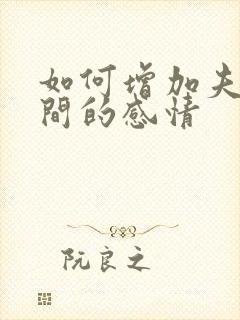 如何增加夫
間的感情
阮良之